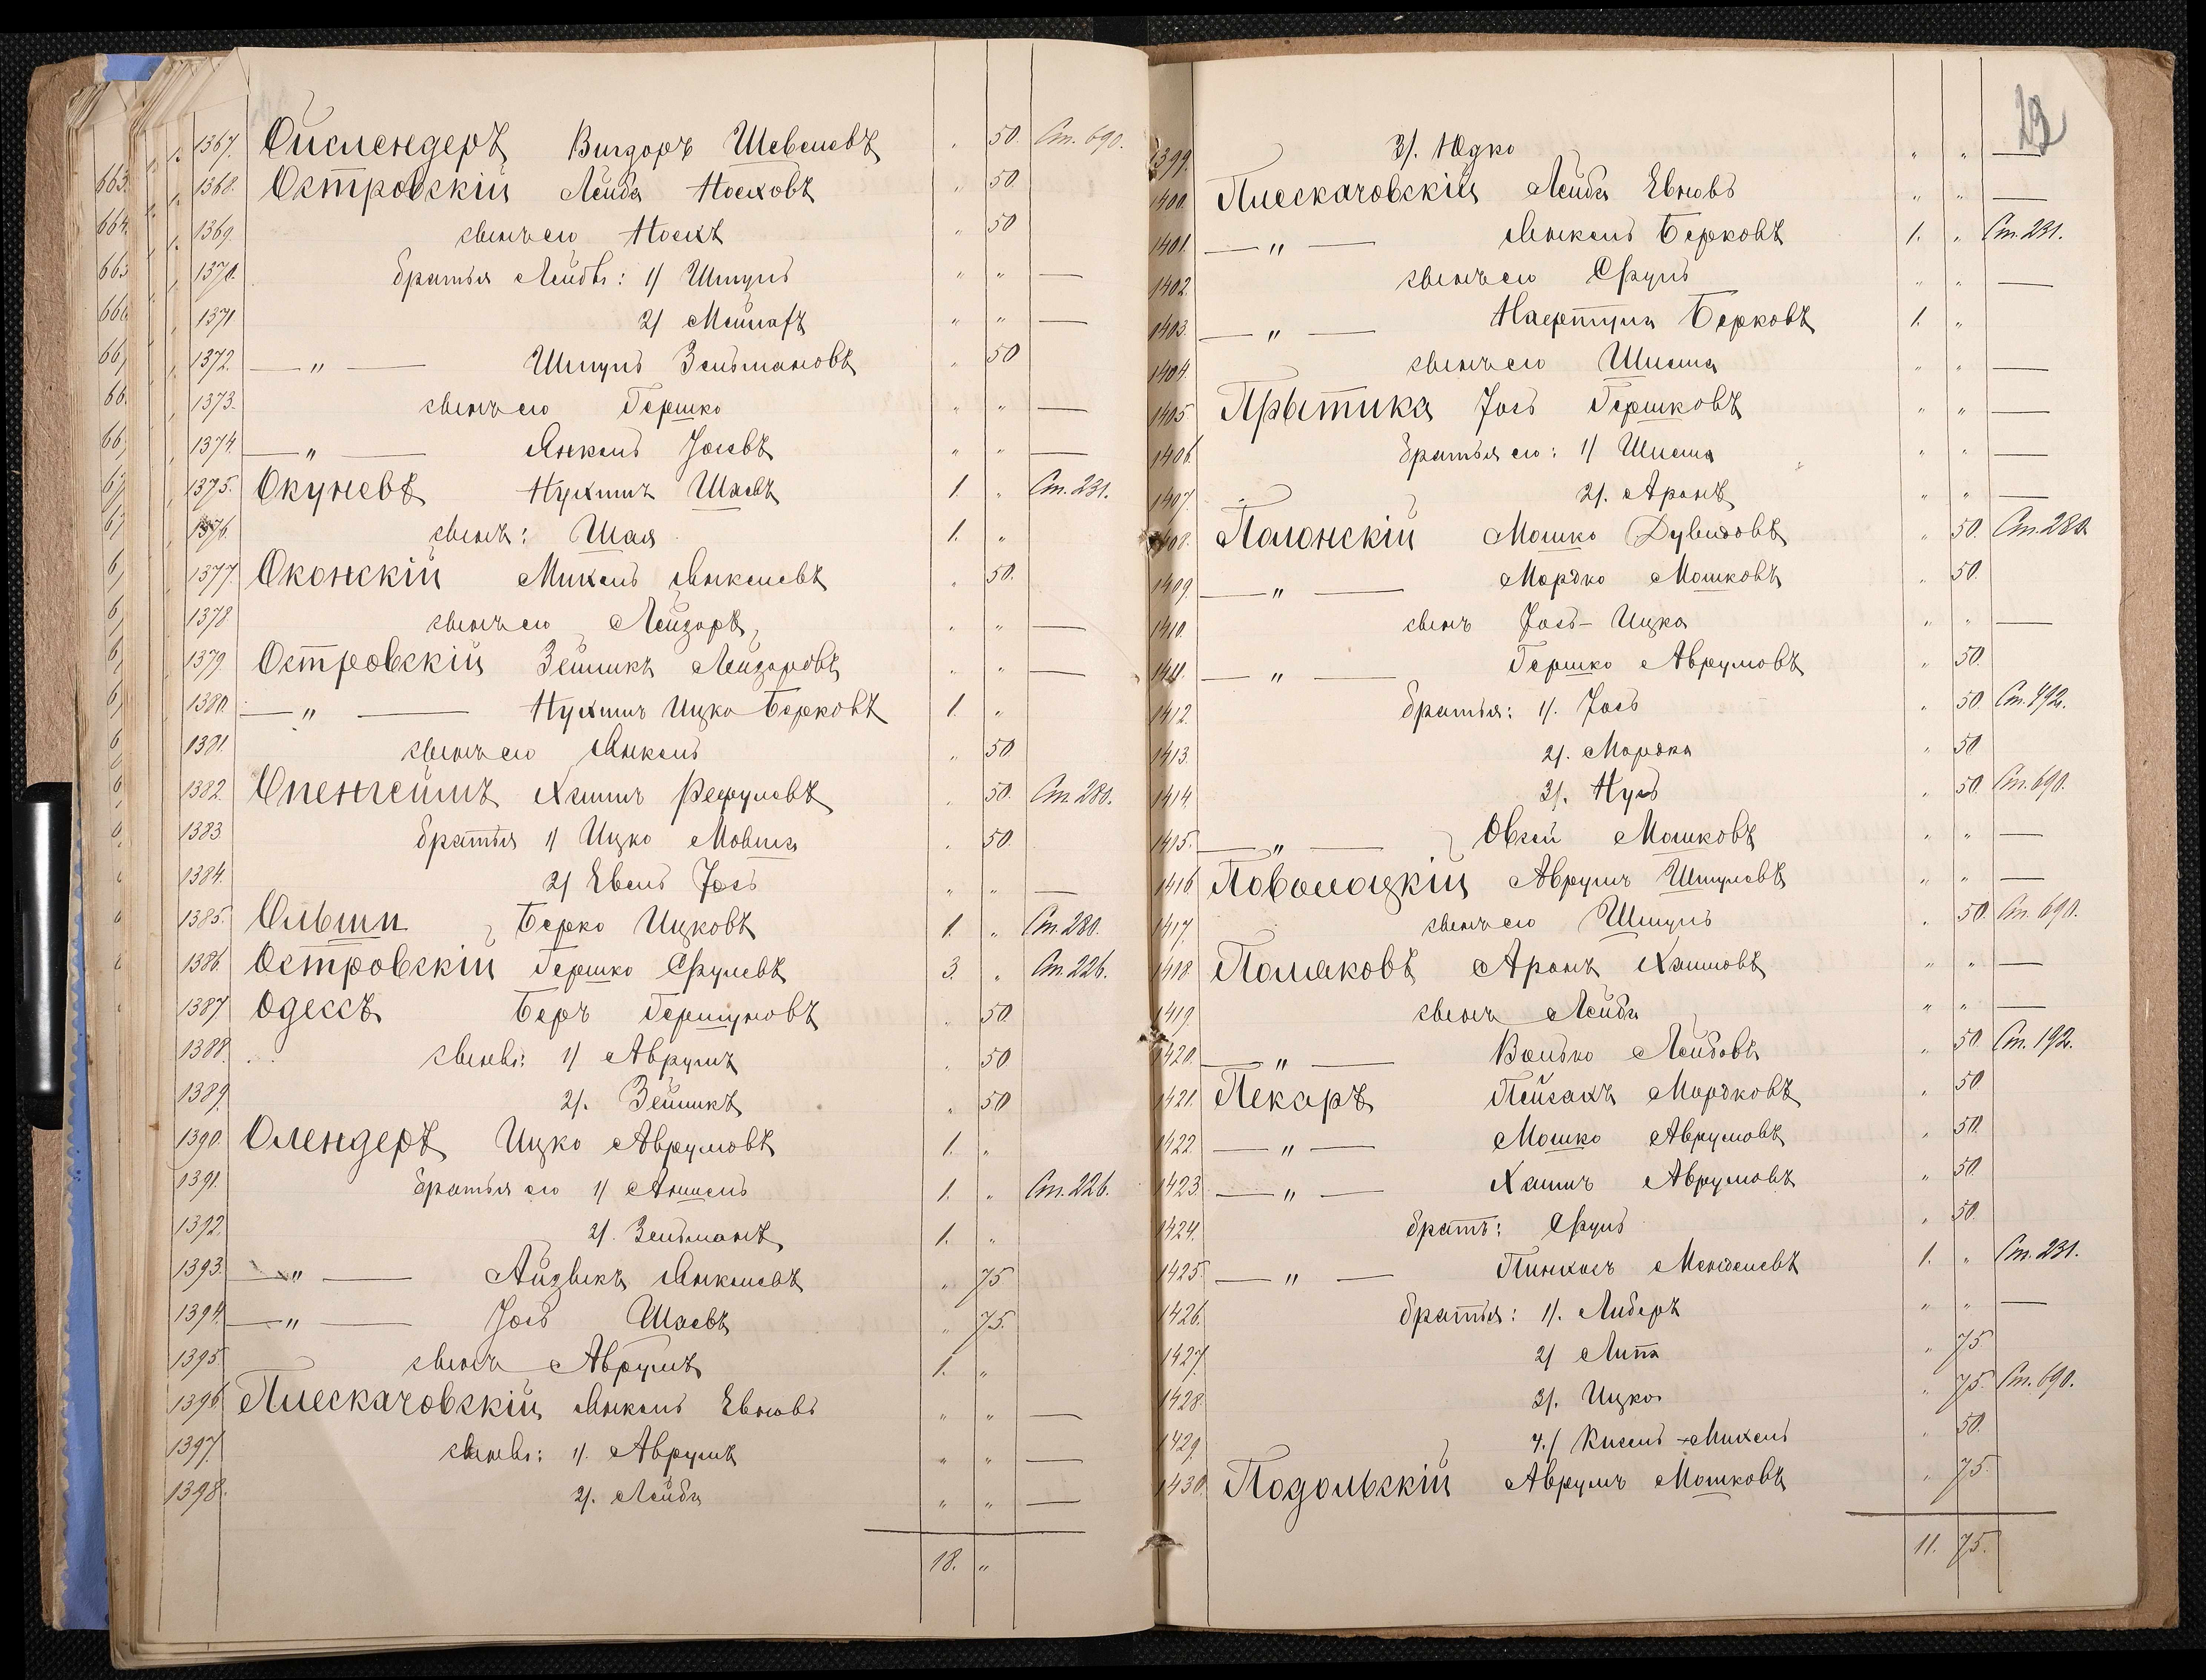 1367. Ойслендеръ Вигдоръ Шевелевъ „ 50. Ст. 690.
1368. Островскій Лейба Носиховъ „ 50.
1369. сынъ его Носихъ „ 50
1370. братья Лейбы: 1/ Шмуль „ „ —
1371 2/ Мейлахъ „ „ —
1372. — „ — Шмуль Зельмановъ „ 50
1373. сынъ его Гершко „ „ —
1374. — „ — Янкель Іосевъ „ „ —
1375. Окуневъ Нухимъ Шаевъ 1. „ Ст. 231.
1376. сынъ: Шая 1. „
1377. Оконскій Михель Янкелевъ „ 50.
1378. сынъ его Лейзоръ „ „ —
1379. Островскій Зейликъ Лейзоровъ „ „ —
1380. — „ — Нухимъ Ицко Берковъ 1. „
1381. сынъ его Янкель „ 50
1382. Опенгеймъ Хаимъ Рефуловъ „ 50. Ст. 280.
1383. братья 1/ Ицко Мовша „ 50.
1384. 2/ Евель Іось „ „ —
1385. Берко Ицковъ 1. „ Ст. 280.
1386. Островскій Гершко Срулевъ 3. „ Ст. 226.
1387. Одессъ Беръ Гершуновъ „ 50
1388. сыновья: 1/ Аврумъ „ 50
1389. 2/. Зейликъ „ 50
1390. Олендеръ Ицко Аврумовъ 1. „
1391. братья его 1/ Аншель 1. „ Ст. 226.
1392. 2/. Зельманъ 1. „
1393. — „ — Айзыкъ Янкелевъ „ 75
1394. — „ — Іось Шаевъ „ 75.
1395. сынъ Аврумъ 1. „
1396. Плескачовскій Янкель Евновъ „ „ —
1397. сыновья: 1/. Аврумъ „ „ —
1398. 2/. Лейба „ „ —
18. „
663.
664.
665
666
29
1399. 3/. Юдко „ „ —
1400. Плескачовскій Лейба Евновъ „ „ —
1401. — „ — Янкель Берковъ 1. „ Ст. 231.
1402. сынъ его Сруль „ „ —
1403. — „ — Нафтула Берковъ 1. „
1404. сынъ его Шлема „ „ —
1405. Прытика Іось Гершковъ „ „ —
1406. братья его: 1/ Шлема „ „ —
1407. 2/. Аронъ „ „ —
1408. Полонскій Мошко Дувидовъ „ 50. Ст. 280
1409. — „ — Мордко Мошковъ „ 50.
1410. сынъ Іось-Ицко „ „ —
1411. — „ — Гершко Аврумовъ „ 50.
1412. братья: 1/. Іось „ 50. Ст. 192.
1413. 2/. Мордко „ 50
1414. 3/. Нусь „ 50. Ст. 690.
1415. — „ — Овсей Мошковъ „ „ —
1416 Поволоцкій Аврумъ Шмулевъ „ „ —
1417. сынъ его Шмуль „ 50. Ст. 690.
1418. Полаковъ Аронъ Хаимовъ „ „ —
1419. сынъ Лейба „ „ —
1420. — „ — Волько Лейбовъ „ 50. Ст. 192.
1421. Пекаръ Пейсахъ Мордковъ „ 50
1422. — „ — Мошко Аврумовъ „ 50.
1423. — „ — Хаимъ Аврумовъ „ 50
1424. братъ: Сруль „ 50.
1425. — „ — Пинхасъ Менделевъ 1. „ Ст. 231.
1426. братья: 1/. Либеръ „ „ —
1427. 2/ Липа „ 75
1428. 3/. Ицко „ 75. Ст. 690.
1429. 4./ Кисель-Михель „ 50.
1430. Подольскій Аврумъ Мошковъ „ 75.
11. 75.